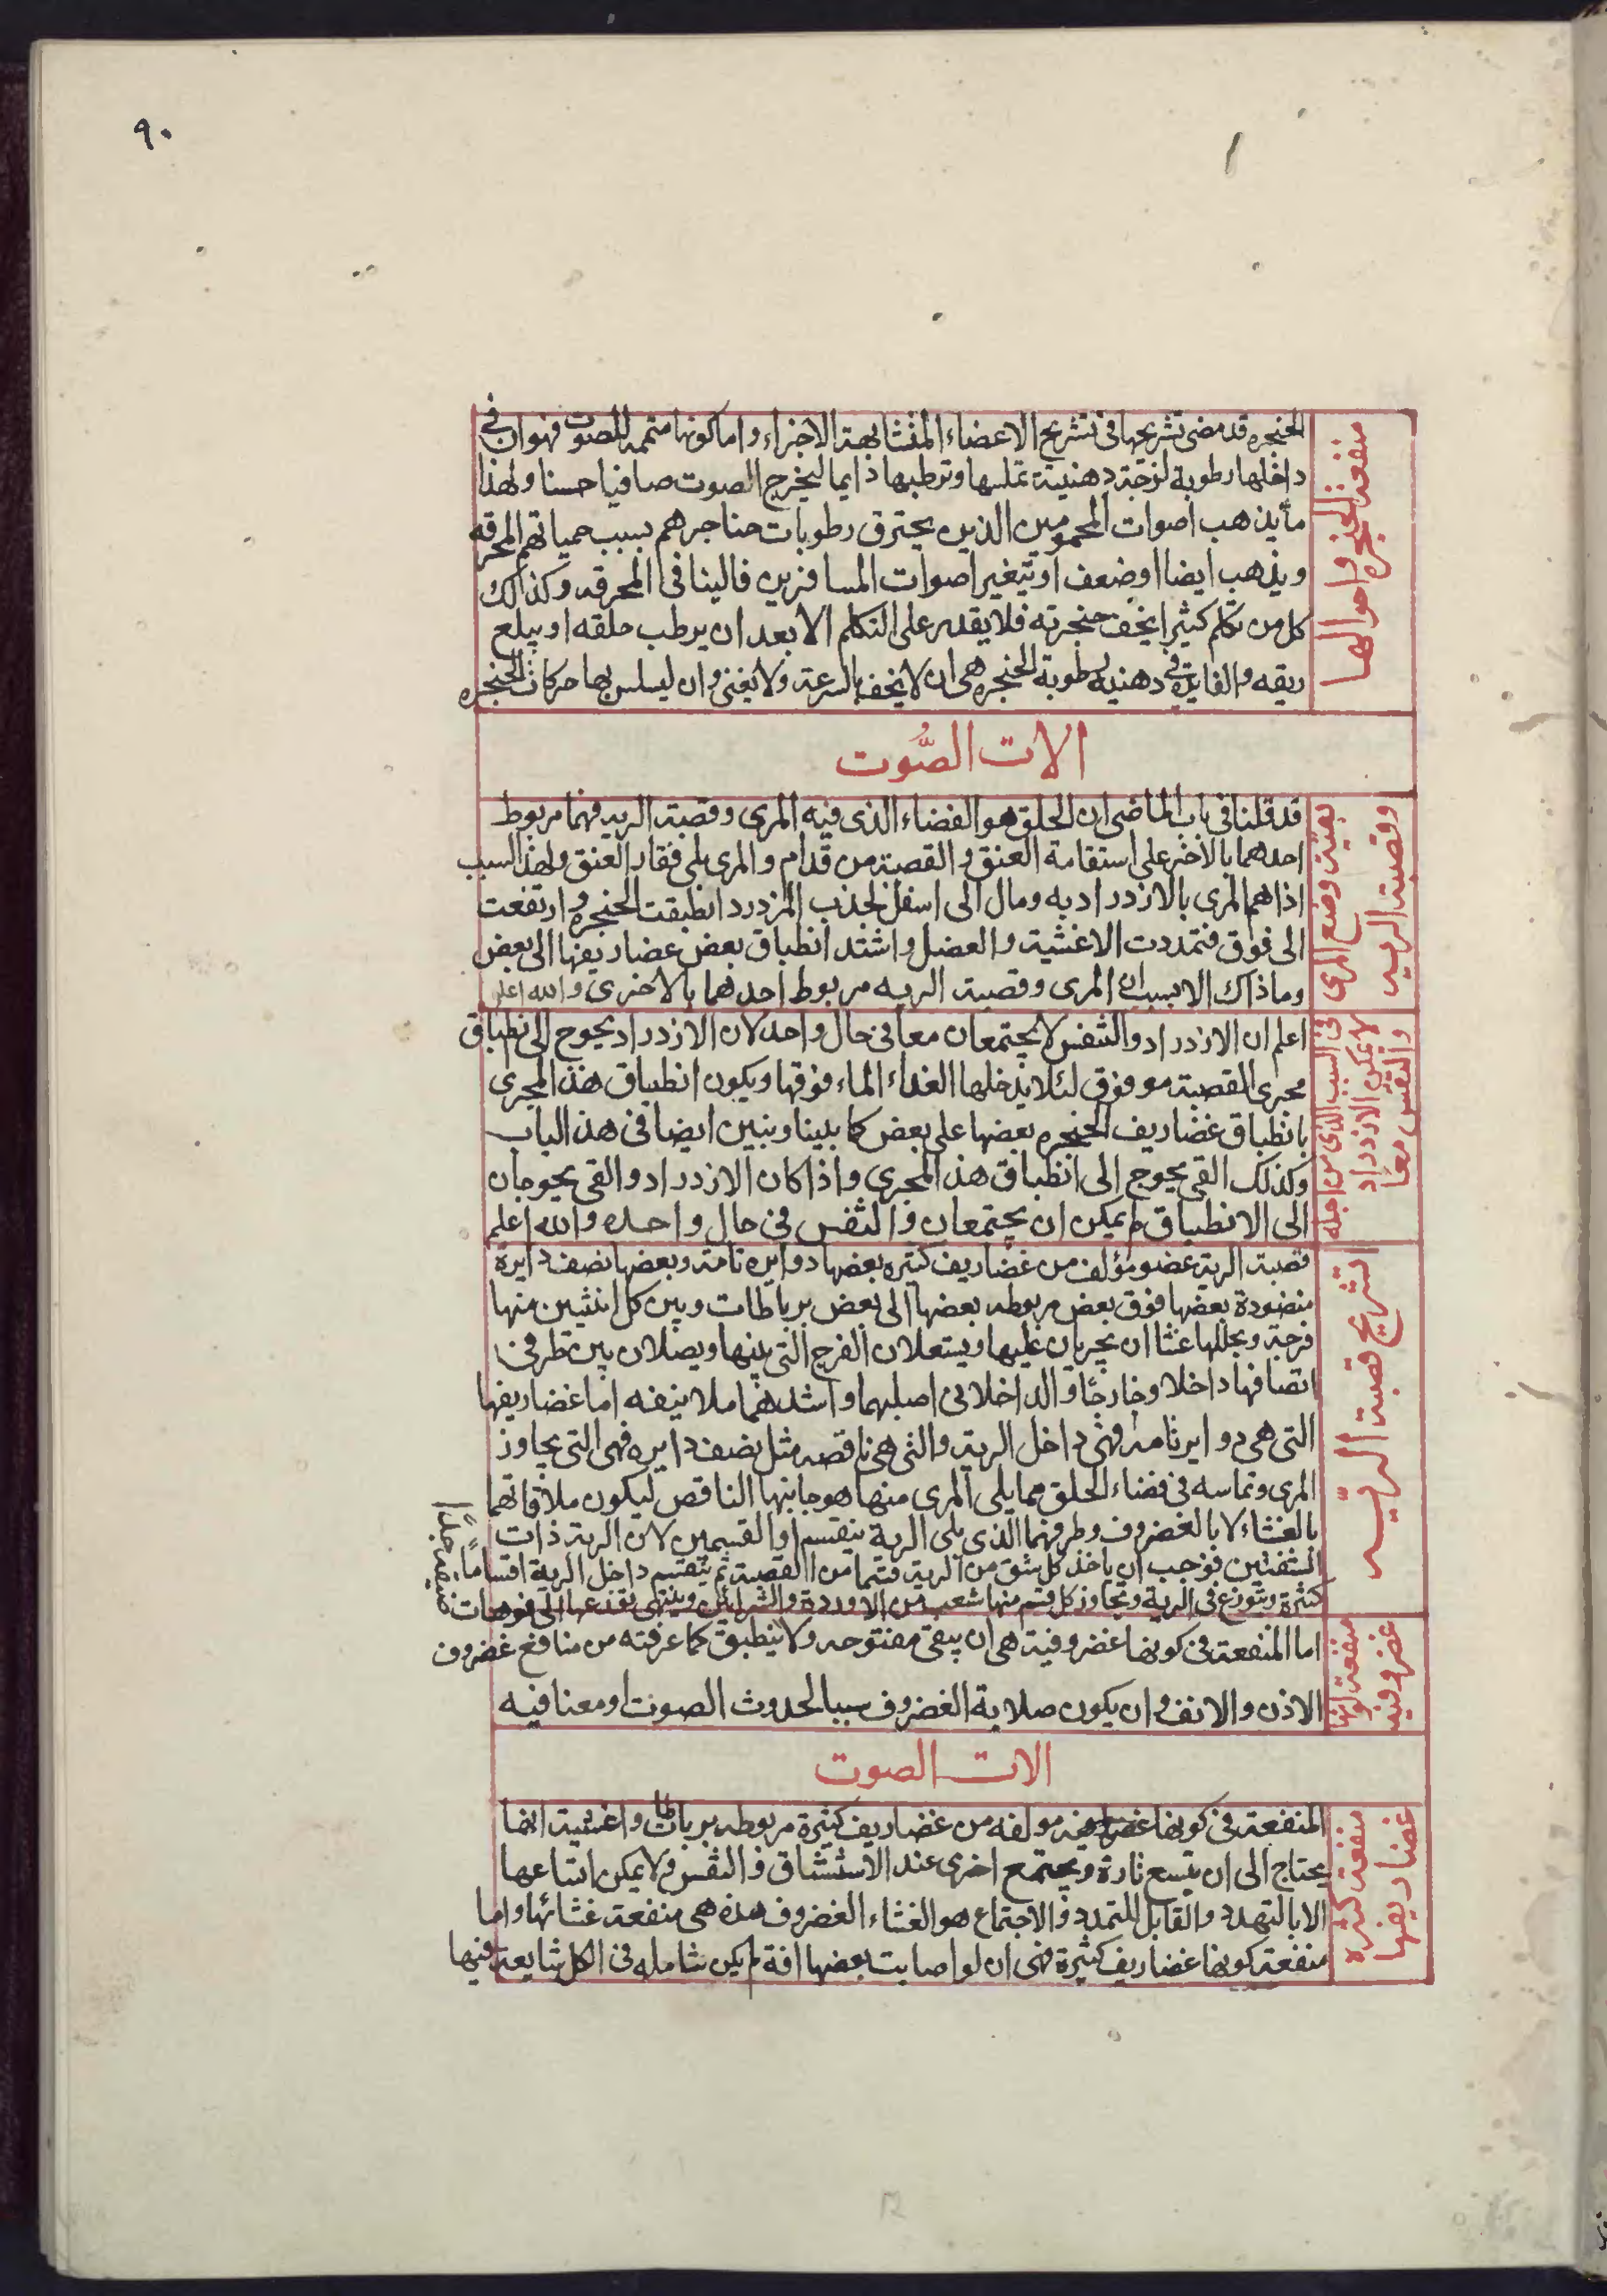 ٩٠
منفعة الحنجره واحوالها
الحنجره قد مضى تشريحها فى تشريح الاعضاء المتشابهة الاجزاء واما كونها متممه للصوت فهو ان فى
داخلها رطوبة لزجة دهنية تملسها وترطبها دايما ليخرج الصوت صافيا حسنا ولهذا
ما يذهب اصوات المحمومين الذين يحترق رطوبات حناجرهم بسبب حمياتهم المحرقه
ويذهب ايضا اوضعف او يتغير اصوات المسافرين فالينا فى المحرقه وكذالك
كل من تكلم كثيرا يخف حنجرته فلا يقدر على التكلم الا بعد ان يرطب حلقه او يبلع
ريقه والفايدة فى دهنية رطوبة الحنجره هى ان لا يخف بالسرعة ولا يفنى وان ليسلس بها حركات الحنجره
الات الصُّوت
بهيئة وضع المرى
وقصبة الريه
قد قلنا فى باب الماضى ان الحلق هو الفضاء الذى فيه المرى وقصبة الريه فهما مربوط
احدهما بالاخر على استقامة العنق والقصبة من قدام والمرى يلى فقار العنق ولهذا السبب
اذا هم المرى بالازدراد به ومال الى اسفل لجذب المزدرد انطبقت الحنجره وارتفعت
الى فوق فتمددت الاغشية والعضل واشتد انطباق بعض غضاريفها الى بعض
وما ذاك الا بسبب ان المرى وقصبة الريه مربوط احدهما بالاخرى والله اعلم
فى السبب الذى من اجله
لا يمكن الازدراد
والتنفس معا
اعلم ان الازدراد والتنفس لا يجتمعان معا فى حال واحد لان الازدراد يحوج الى انطباق
مجرى القصبة مو فوق لئلا يدخلها الغداء الماء فوقها ويكون انطباق هذا المجرى
بانطباق غضاريف الحنجره بعضها على بعض كما بينا وبنين ايضا فى هذا الباب
وكذلك القى يحوج الى انطباق هذا المجرى واذا كان الازدراد والقى يحوجان
الى الانطباق لم يمكن ان يجتمعان والتنفس فى حال واحده والله اعلم
تشريح قصبة الريّه
قصبة الرية عضو مؤلف من غضاريف كثيره بعضها دوايره تامة وبعضها نصف دايرة
منضودة بعضها فوق بعض مربوطه بعضها الى بعض برباطات وبين كل اثنين منها
فرجة ويجللها غشا ان يجريان عليها ويستعلان الفرج التى بينها ويصلان بين طرفى
انصافها داخلا وخارجًا والداخلانى اصلبهما واشدهما ملا اما غضاريفها
التى هى دواير تامة فهى داخل الرية والتى هى ناقصه مثل نصف دايره فهى التى يجاوز
المرى وتماسه فى فضاء الحلق مما يلى المرى منها هو جانبها الناقص ليكون ملاقاتهما
بالغشاء لا بالغضروف وطرفهما الذى يلى الرية ينقسم او القسمين لان الرية ذات
الشفتين فوجب ان ياخذ كل شق من الرية قسما من القصبة ثم ينقسم داخل الرية اقسامًا
كثيرة ويتوزع فى الرية ويجاوز كل قسم منها شعب من الاوردة والشرائين وينتهى الى فوهات
ضيقه جدًا
منفعة كونها
غضروفيه
اما المنفعة فى كونها غضروفية هى ان يبقى مفتوحه ولا ينطبق كما عرفته من منافع غضروف
الاذن والانف وان يكون صلابة الغضروف سببا لحدوث الصوت او معنا فيه
الات الصوت
منفعة كثره
غضاريفها
المنفعة فى كونها مولفه من غضاريف كثيرة مربوطه برباطات واغشية انها
يحتاج الى ان يتسع تارة ويجتمع اخرى عند الاستنشاق والتنفس ولا يمكن اتساعها
الا بالتهدد والقابل للتمدد والاجتماع هو الغشاء الغضروف هذه هى منفعة غشائها واما
منفعة كونها غضاريف كثيرة فهى ان لو اصابت بعضها افة لم يكن شامله فى الكل شايعة فيها